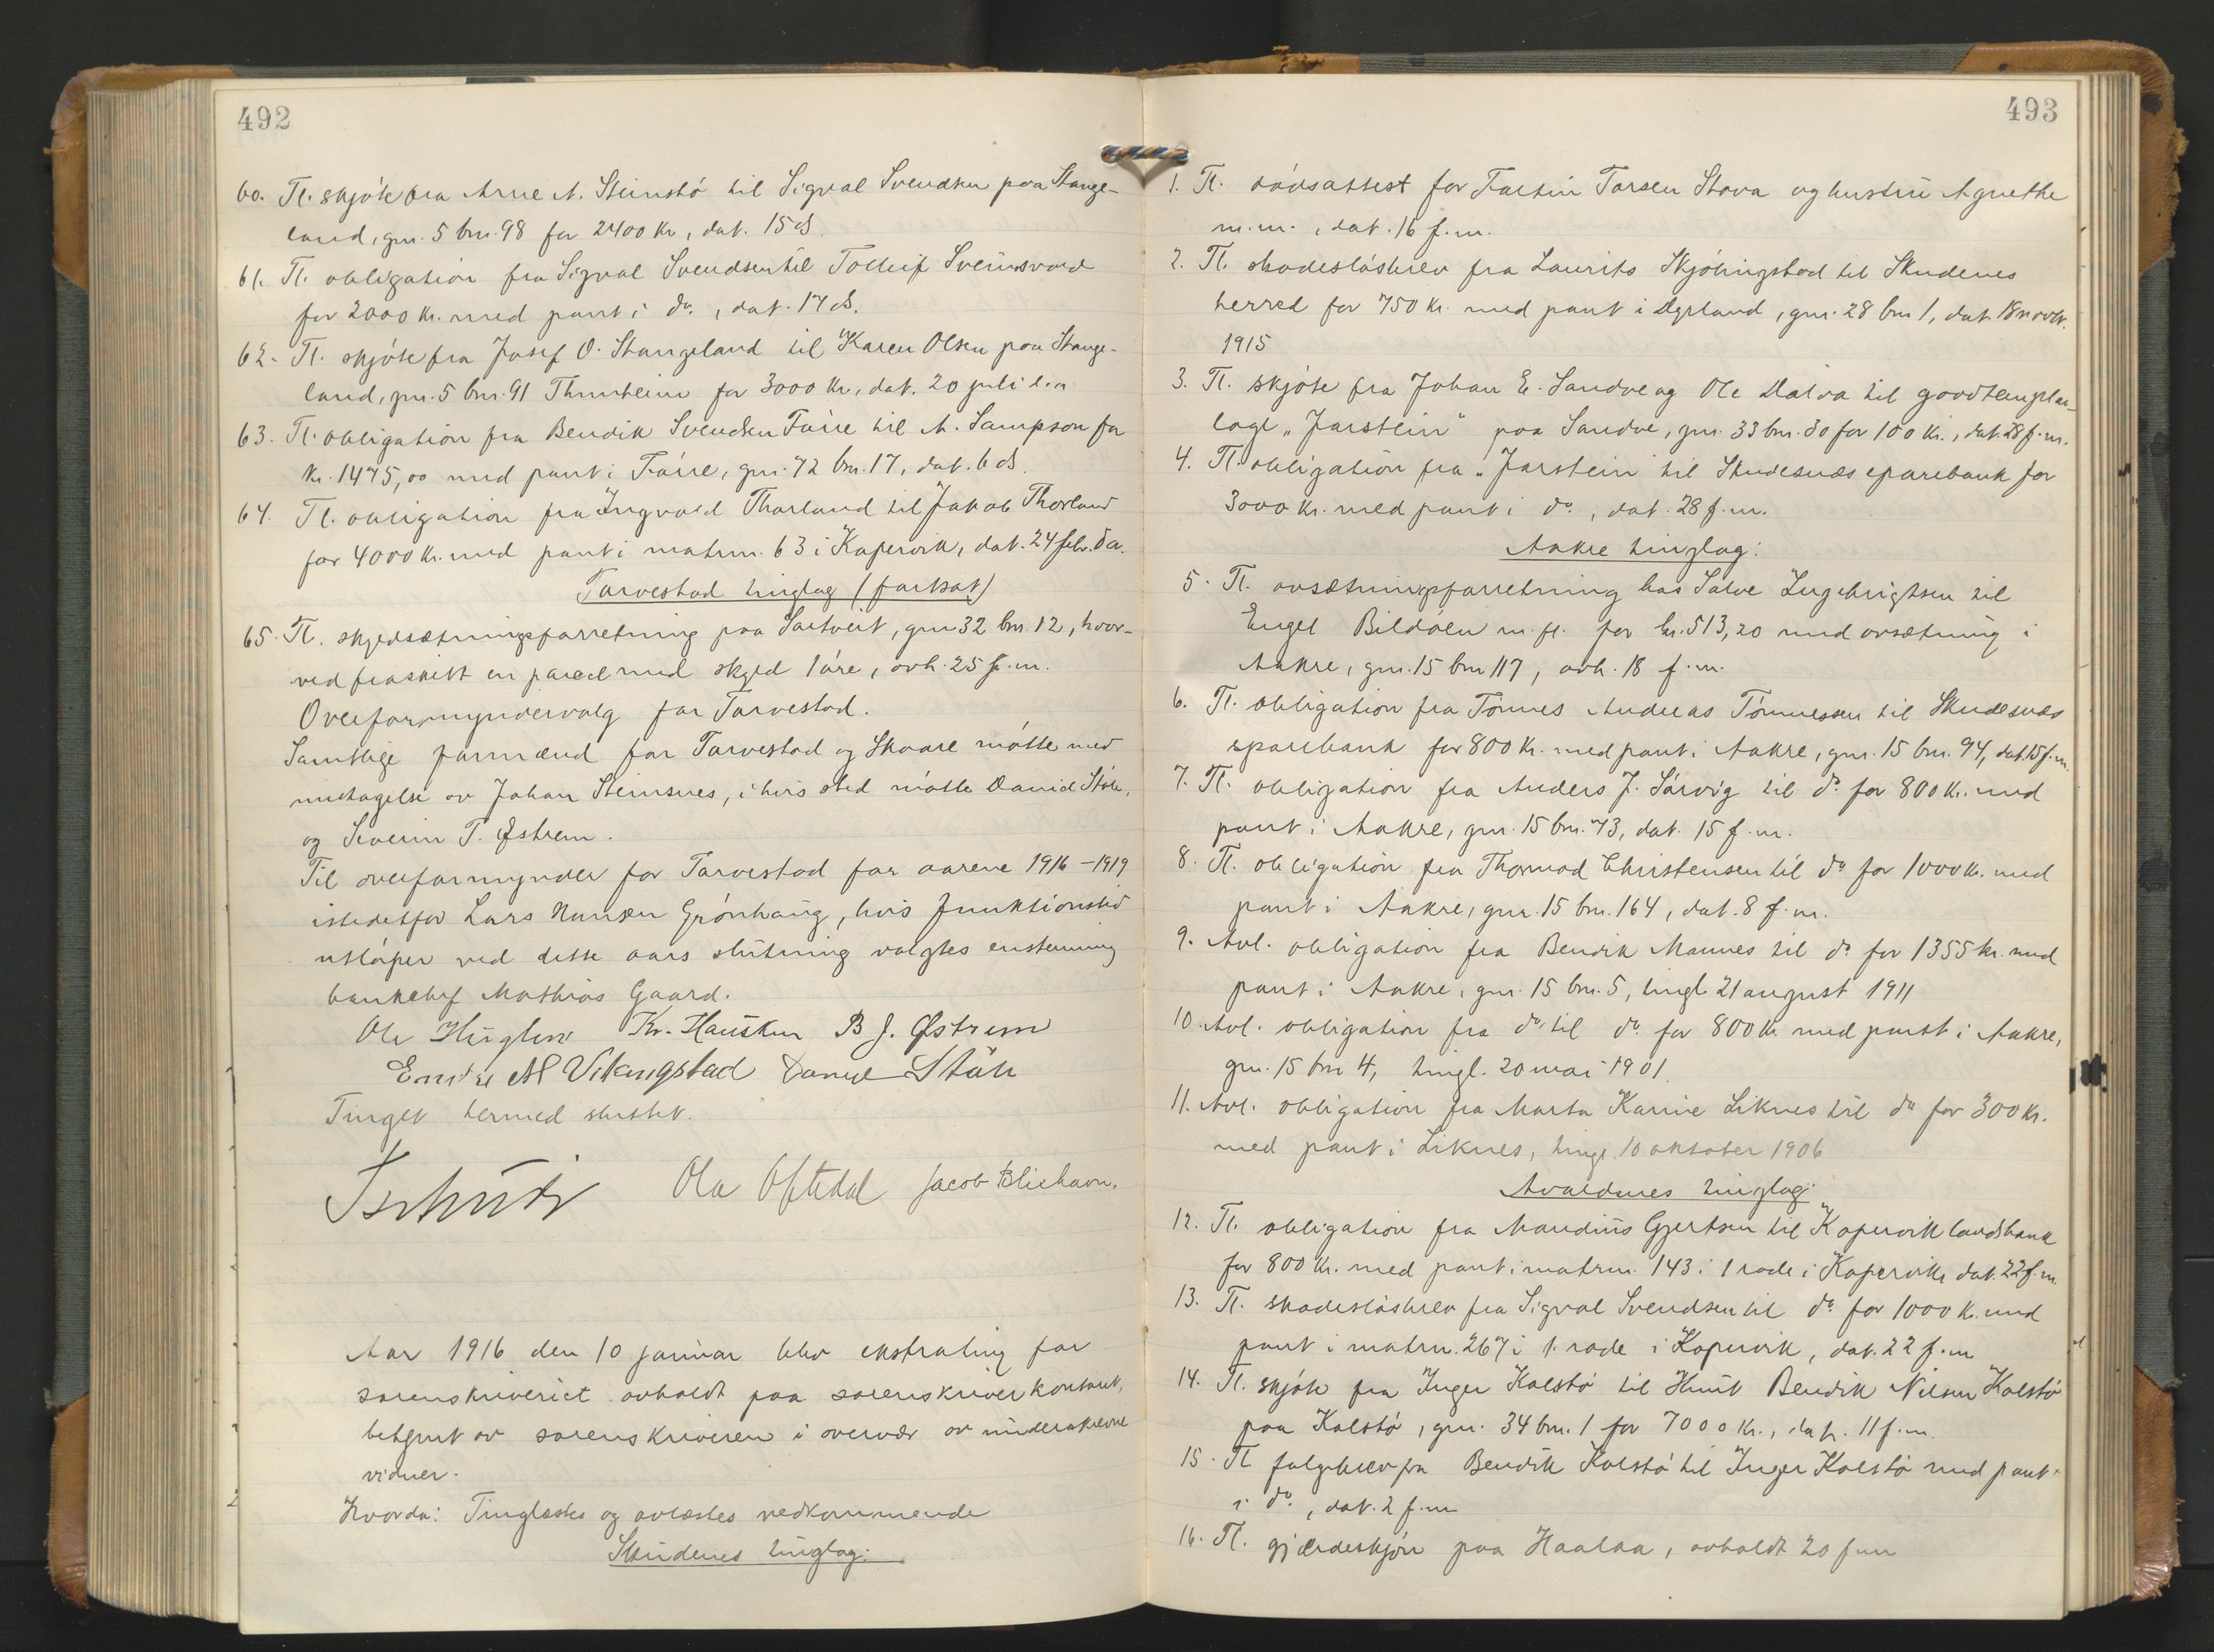 492
60. Tl. skjöte fra Arne N. Steinstö til Sigval Svendsen paa Stange-
land, gnr. 5 bnr. 98 for 2400 Kr, dat. 15 ds.
61. Tl. obligation fra Sigval Svendsen til Tolleif Sveinsvold
for 2000 Kr. med pant i do, dat. 17 ds.
62. Tl. skjöte fra Josef O. Stangeland til Karen Olsen paa Stange-
land, gnr. 5 bnr. 91 for 3000 Kr, dat. 20 juli
63. Tl. obligation fra Bendik Svendsen Föire til M. Sampson for
Kr. 1475,00 med pant i Föire, gnr. 72 bnr. 17, dat. 6 ds.
64. Tl. obligation fra Ingvald Thorland til Jakob Thorland
for 4000 Kr. med pant i matrnr. 63 i Kopervik, dat. 24 febr. da.
Torvestad tinglag (fortsat)
65. Tl. skyldsætningsforretning paa Sartveit, gnr 32 bnr. 12, hvor-
ved fraskilt en parcel med skyld 1 öre, avh. 25 f.m.
Overformyndervalg for Torvestad.
Samtlige formænd for Torvestad og Skaare mötte med
undtagelse av Johan Steinsnes, i hvis sted mötte Daniel Stöle,
og Severin T. Østrem.
Til overformynder for Torvestad for aarene 1916-1919
istedetfor Lars Hansen Grönhaug, hvis funktionstid
utlöper ved dette aars slutning valgtes enstemmig
bankchef Mathias Gaard.
Ole Huglen Kr. Hausken B J. Østrem
Endre M Vikingstad Daniel Stöle
Tinget hermed sluttet.
Tschudi Ola Oftedal Jacob Bliehavn.
Aar 1916 den 10 januar blev ekstrating for
sorenskriveriet avholdt paa sorenskriverkontoret,
betjent av sorenskriveren i overvær av underskrevne
vidner.
Hvorda: Tinglæstes og avlæstes vedkommende
Skudenes tinglag:
493
1. Tl. dödsattest for Torsen Stava og hustru Agnethe
m.m., dat. 16 f.m.
2. Tl. skadeslösbrev fra Laurits Skjölingstad til Skudenes
herred for 750 Kr. med pant i Dyrland, gnr. 28 bnr 1, dat. 18 novbr.
1915
3. Tl. skjöte fra Johan E. Sandve og Ole Dalva til goodtemplar-
loge "Jarstein" paa Sandve, gnr. 33 bnr. 30 for 100 Kr., dat. 28 f.m.
4. Tl. obligation fra "Jarstein" til Skudesnæs sparebank for
3000 Kr. med pant i do, dat. 28 f.m.
Aakre tinglag:
5. Tl. avsætningsforretning hos Salve Ingebrigtsen til
Engel Bildöen m. fl. for kr. 513,20 med avsætning i
Aakre, gnr. 15 bnr 117, avh. 18 f.m.
6. Tl. obligation fra Tönnes Andreas Tönnessen til Skudesnæs
sparebank for 800 Kr. med pant i Aakre, gnr. 15 bnr. 94, dat. 15 f.m.
7. Tl. obligation fra Anders J. Sörvig til do for 800 Kr. med
pant i Aakre, gnr. 15 bnr. 73, dat. 15 f.m.
8. Tl. obligation fra Thormod Christensen til do for 1000 Kr. med
pant i Aakre, gnr. 15 bnr. 164, dat. 8 f.m.
9. Avl. obligation fra Bendik Mannes til do for 1355 kr. med
pant i Aakre, gnr. 15 bnr. 5, tingl. 21 august 1911
10. Avl. obligation fra do til do for 800 Kr. med pant i Aakre,
gnr. 15 bnr 4, tingl. 20 mai 1901.
11. Avl. obligation fra Marta Karine Liknes til do for 300 Kr.
med pant i Liknes, tingl. 10 oktober 1906
Avaldsnes tinglag:
12. Tl. obligation fra Mandius Gjertsen til Kopervik landsbank
for 800 Kr. med pant i matrnr. 143 i 1 rode i Kopervik, dat. 22 f.m.
13. Tl. skadeslösbrev fra Sigval Svendsen til do for 1000 K. med
pant i matrnr. 267 i 1. rode i Kopervik, dat. 22 f.m
14. Tl. skjöte fra Inger Kolstö til Knut Bendik Nilsen Kolstö
paa Kolstö, gnr. 34 bnr. 1 for 7000 Kr., dat. 11 f.m.
15. Tl. folgebrev fra Bendik Kolstö til Inger Kolstö med pant
i do, dat. 2 f.m
16. Tl. gjærdeskjön paa Haalaa, avholdt 20 f.m